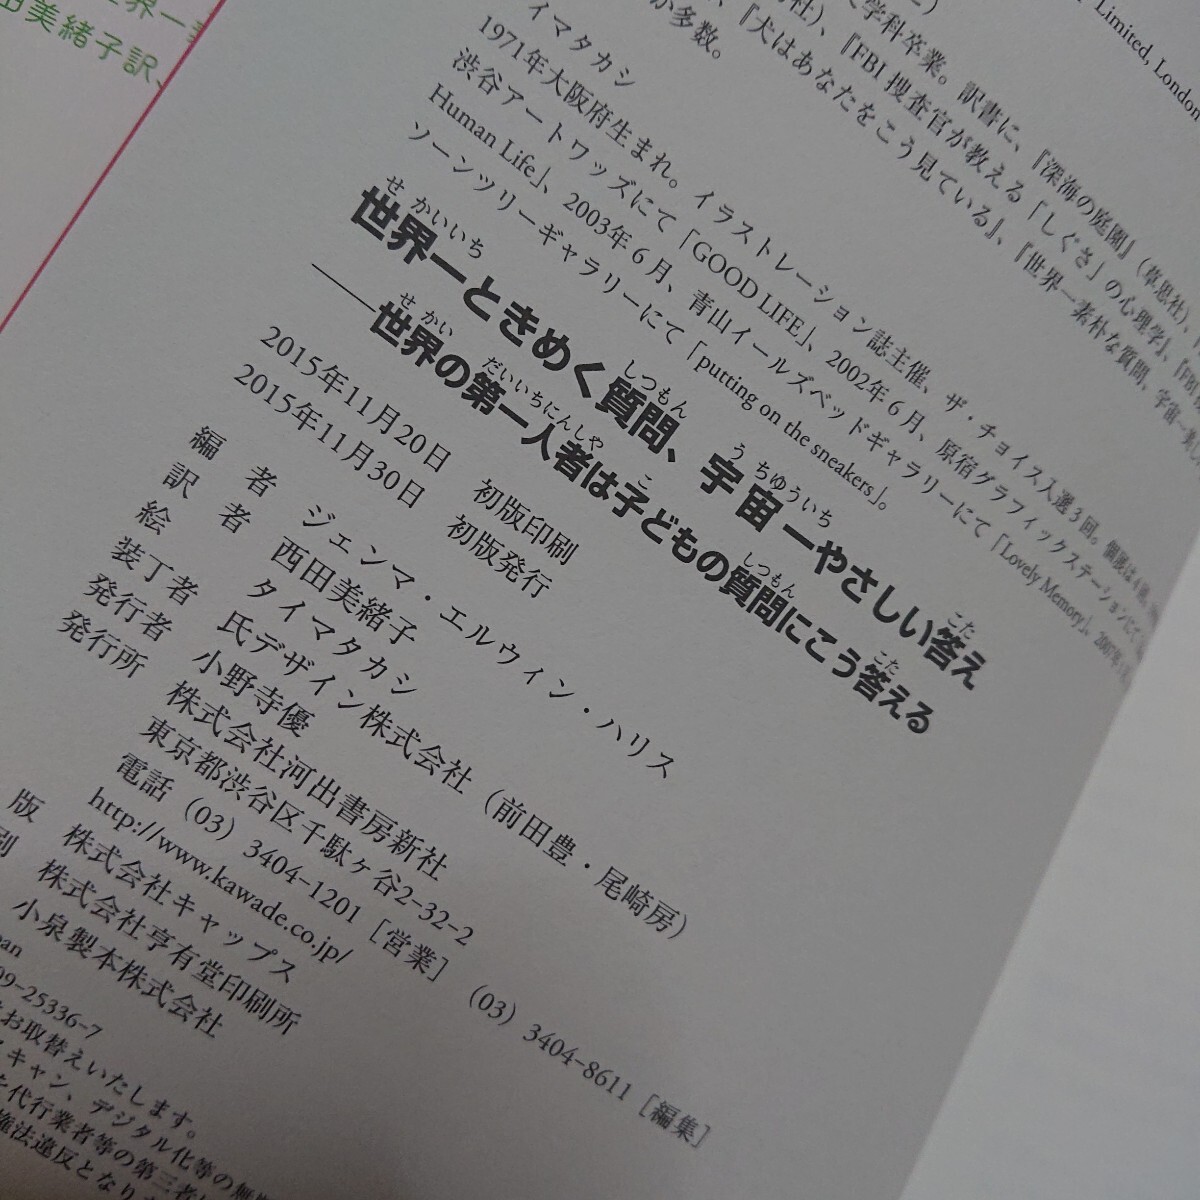 世界一
田美緒子訳、
Limited, London
学科卒業。訳書に、『深海の庭園』(草思社)、
社)、『FBI捜査官が教える「しぐさ」の心理学』、
『犬はあなたをこう見ている』、『世界一素朴な質問、宇宙一美しい
多数。
イマタカシ
1971年大阪府生まれ。イラストレーション誌主催、ザ・チョイス入選3回。個展は4回、
渋谷アートワッズにて「GOOD LIFE」、2002年6月、原宿グラフィックステーションにて
Human Life」、2003年6月、青山イールズベッドギャラリーにて「Lovely Memory」、2007年
ソーンツリーギャラリーにて「putting on the sneakers」。
せかいいち しつもん うちゅういち こた
世界一ときめく質問、宇宙一やさしい答え
せかい だいいちにんしゃ こ しつもん こた
——世界の第一人者は子どもの質問にこう答える
2015年11月20日 初版印刷
2015年11月30日 初版発行
編者 ジェンマ・エルウィン・ハリス
訳者 西田美緒子
絵 タイマタカシ
装丁者 氏デザイン株式会社(前田豊・尾崎房)
発行者 小野寺優
発行所 株式会社河出書房新社
東京都渋谷区千駄ヶ谷2-32-2
電話(03)3404-1201[営業](03)3404-8611[編集]
http://www.kawade.co.jp/
版 株式会社キャップス
刷 株式会社亨有堂印刷所
小泉製本株式会社
pan
09-25336-7
お取替えいたします。
スキャン、デジタル化等の無
代行業者等の第三者
権法違反となり